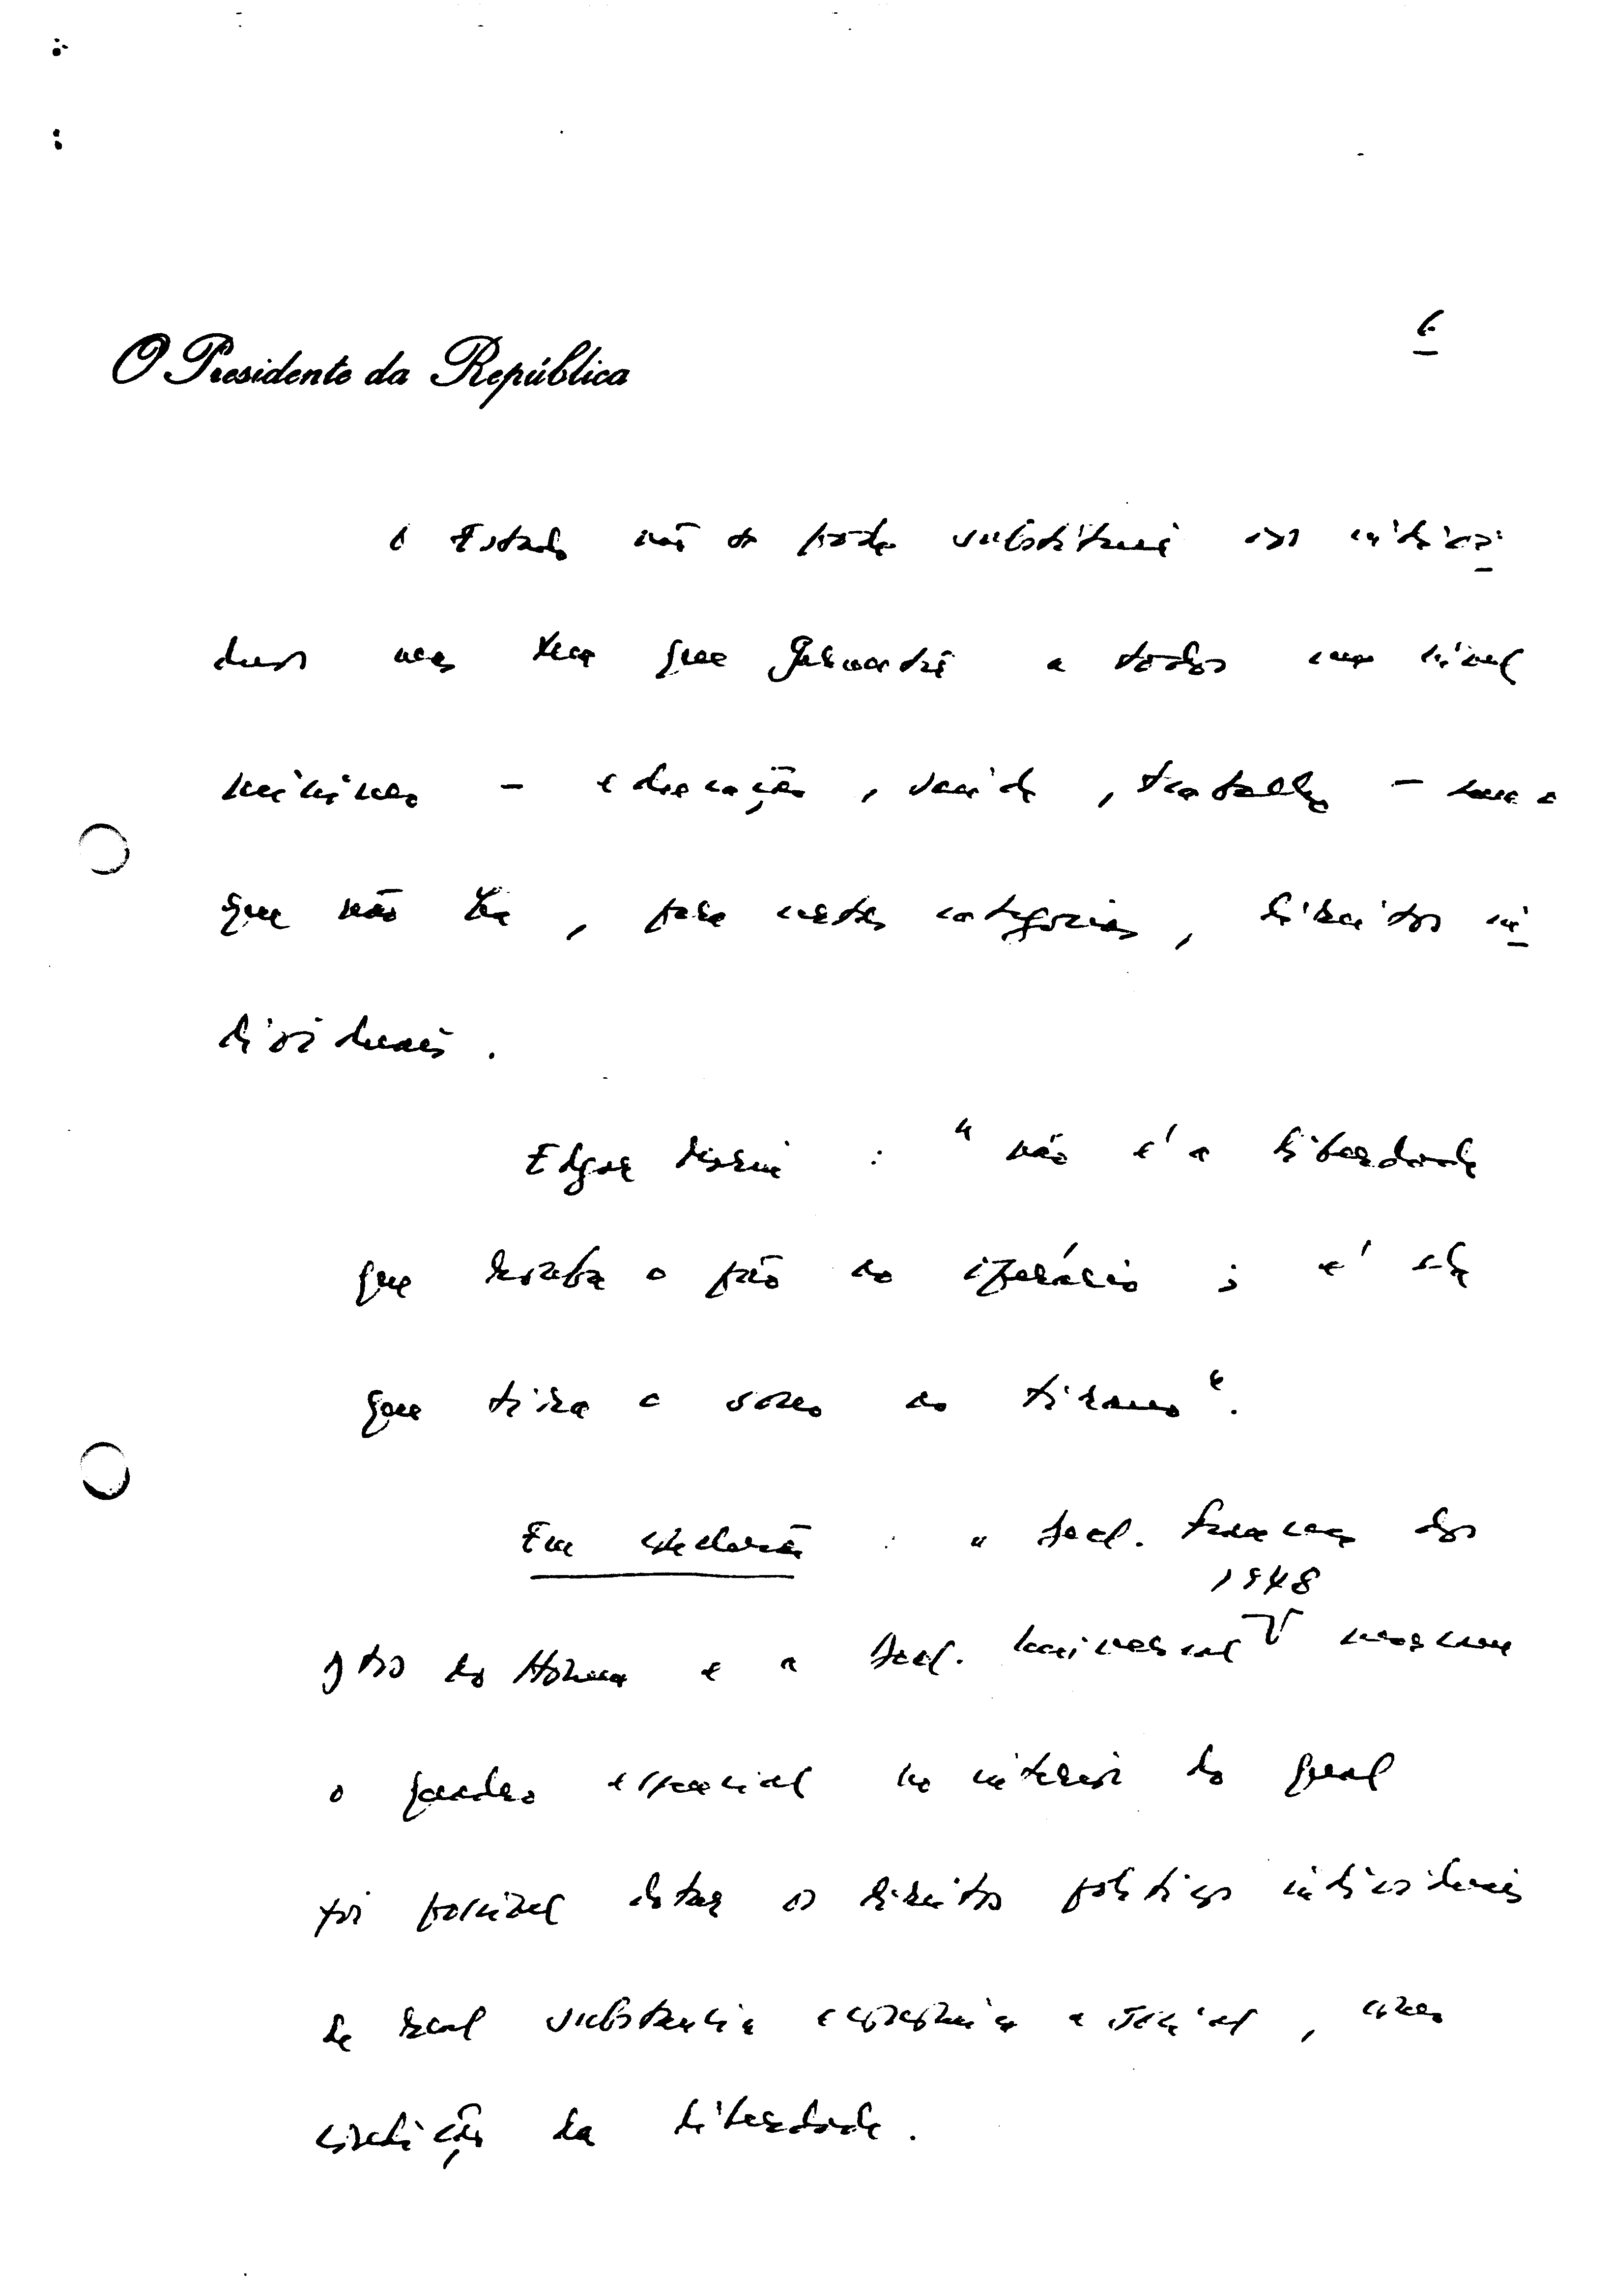 O Presidente da República
6
O Estado não se pode substituir aos indiví
duos mas tem que garantir a todos um nível
mínimo - educação, saúde, trabalho - sem o
que não há, para certas categorias, direitos in
dividuais.
Edgar Morin : "não é a liberdade
que rouba o pão ao operário ; é ela
que tira o sono ao tirano".
Em conclusão : a Decl. Francesa dos
1948
Dtos do Homem e a Decl. Universal V
o quadro essencial no interior do qual
foi possível dotar os direitos políticos individuais
de real substância económica e social, como
condição da liberdade.